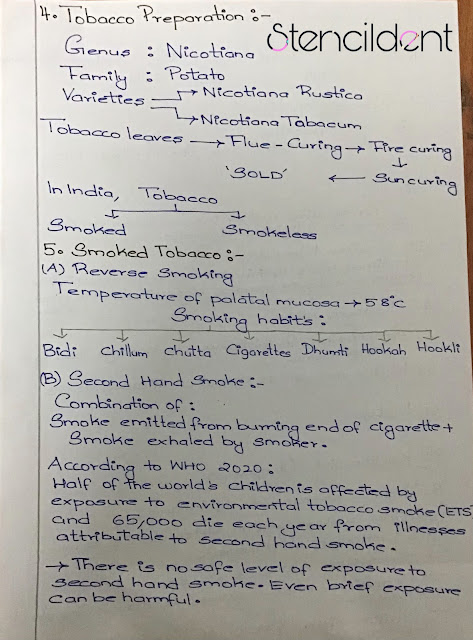 4. Tobacco Preparation :-
Stencildent
Genus : Nicotiana
Family : Potato
Varieties → Nicotiana Rustica
→ Nicotiana Tabacum
Tobacco leaves → Flue-Curing → Fire curing
↓
'SOLD' ← Sun curing
In India, Tobacco
Smoked Smokeless
5. Smoked Tobacco :-
(A) Reverse Smoking
Temperature of palatal mucosa → 58°c
Smoking habit's :
Bidi Chillum Chutta Cigarettes Dhumti Hookah Hookli
(B) Second Hand Smoke :-
Combination of :
Smoke emitted from burning end of cigarette +
Smoke exhaled by smoker.
According to WHO 2020 :
Half of the world's children is affected by
exposure to environmental tobacco smoke (ETS)
and 65,000 die each year from illnesses
attributable to second hand smoke.
→ There is no safe level of exposure to
second hand smoke. Even brief exposure
can be harmful.